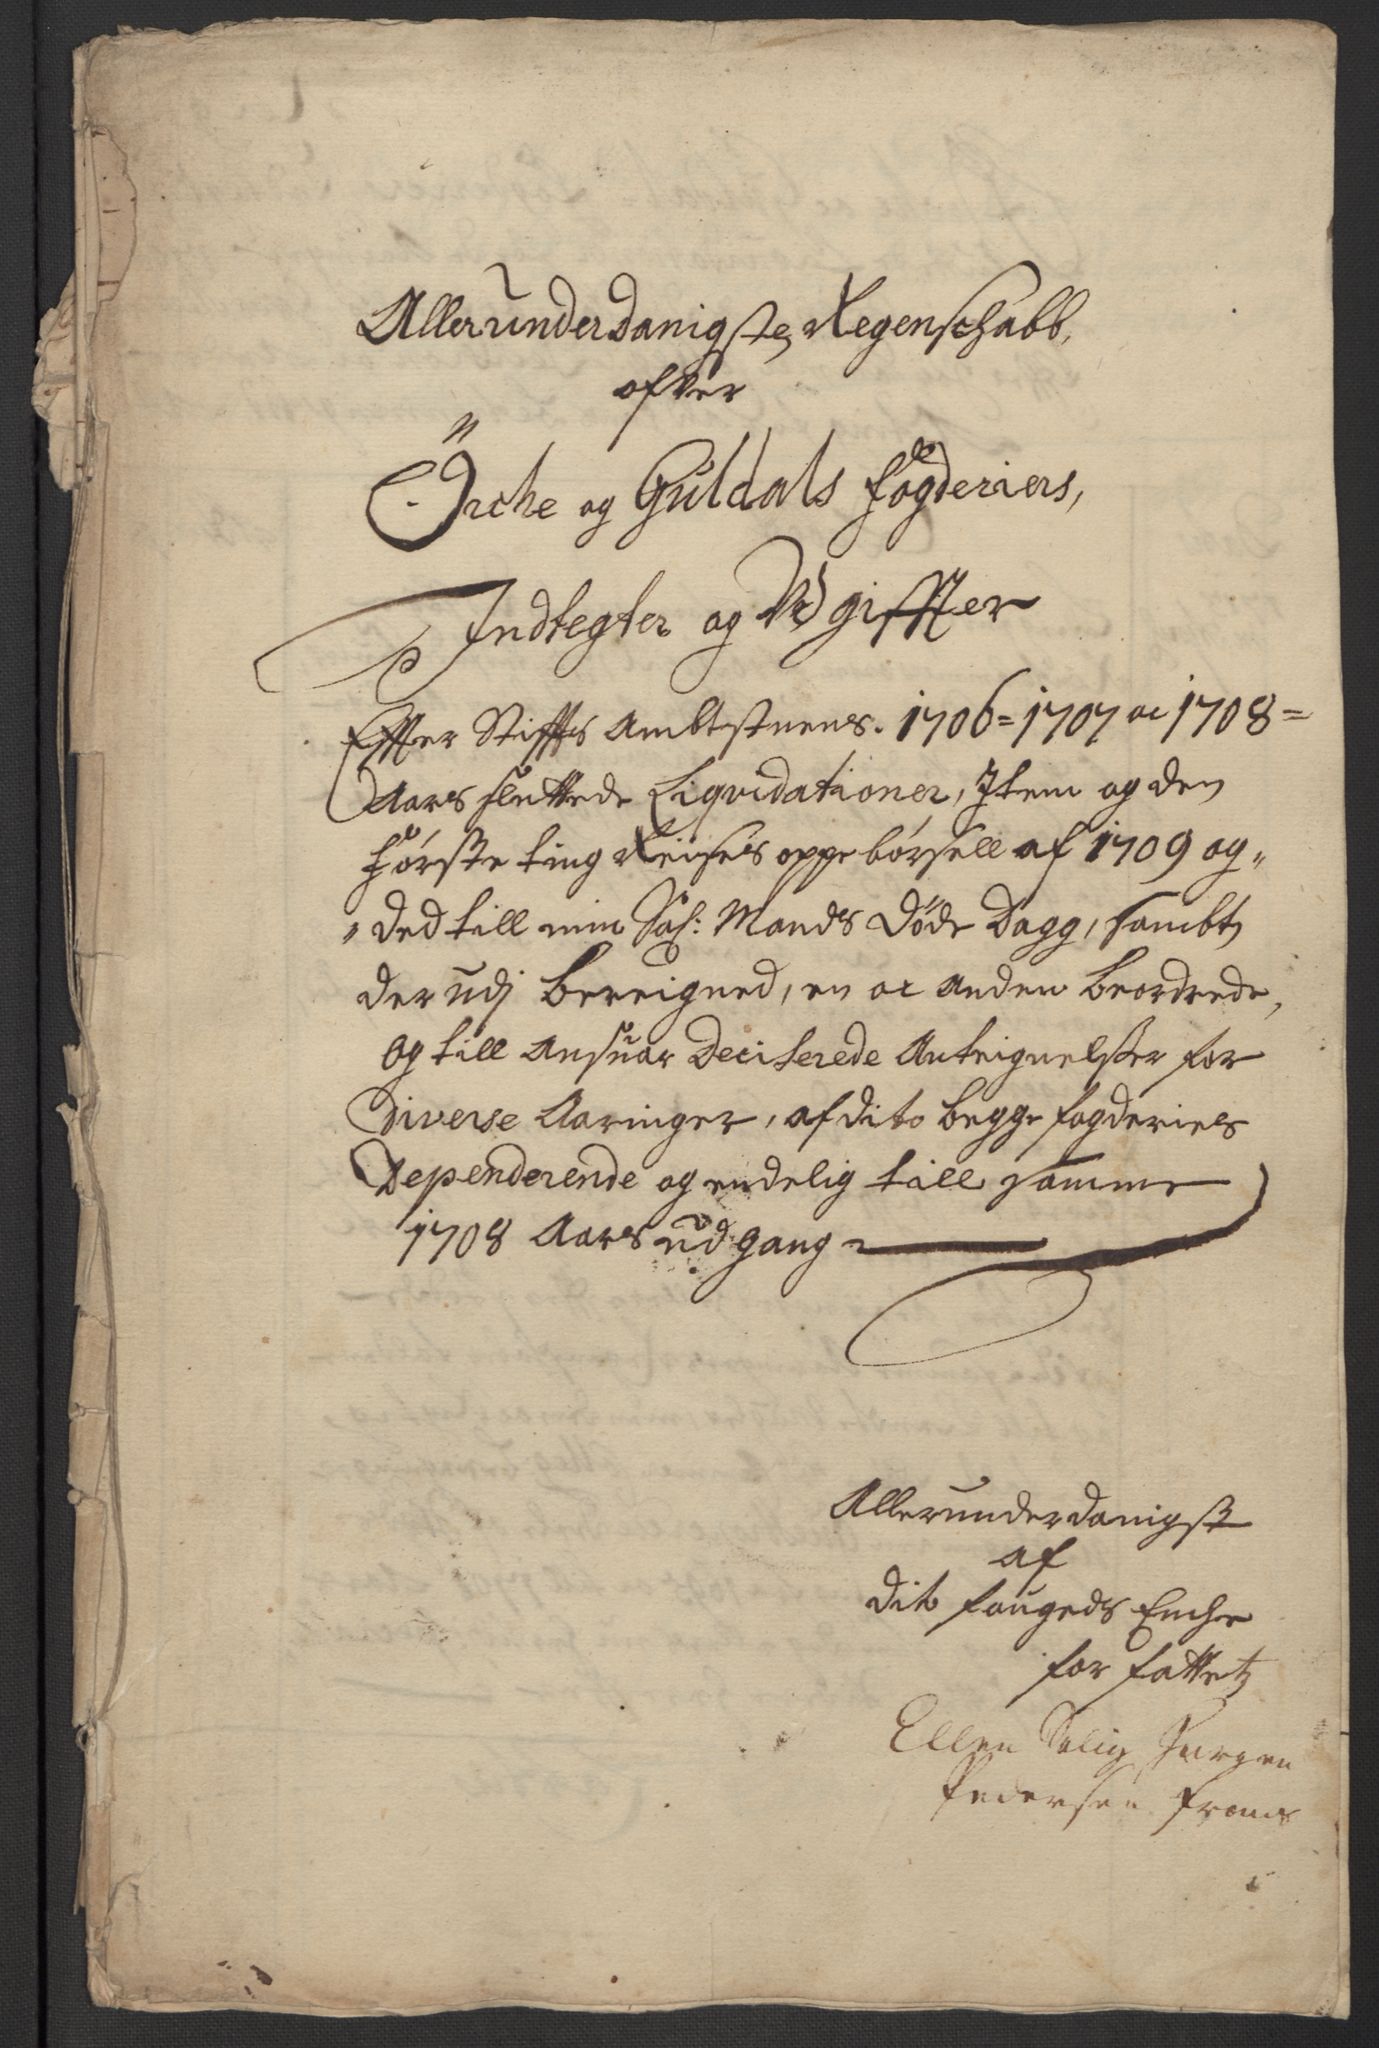 Allerunderdanigste Regenschabb,
ofver
Örche og Guldals fogderiers,
Indtegter og Udgiffter
Effter Stiffts Ambtstuens. 1706 = 1707 oc 1708 =
Aars sluttede Liqvidationer, Item og den
første ting Reises oppebørsell af 1709 og„
„ ded till min Sal: Mands Døds Dagg, sambt
der udj bereigned, en oc anden beordrede,
og till Ansuar Deciterede Anteignelser for
Diverse Aaringer, af dito begge fogderiers
Dependerende og endelig till samme
1708 Aars udgang
Allerunderdanigst
af
dito fougeds Enche
for fattet
Ellen Salig Jørgen
Pedersen